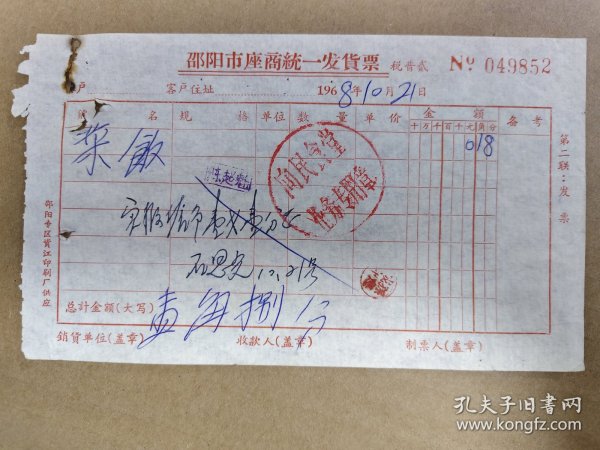 邵阳市座商統一发貨票 税普贰 Nº 049852
户 客户住址 1968年10月21日
名 規 格 单位 数 量 单 价 金 額 备 考
十 万 千 百 十 元 角 分
菜飯 018
向民食堂
石思光 10.21号
总计金額(大写) 壹角捌分
銷貨单位(盖章) 收款人(盖章) 制票人(盖章)
第二联:发票
邵阳专区资江印刷厂供应
孔夫子旧书网
www.kongfz.com